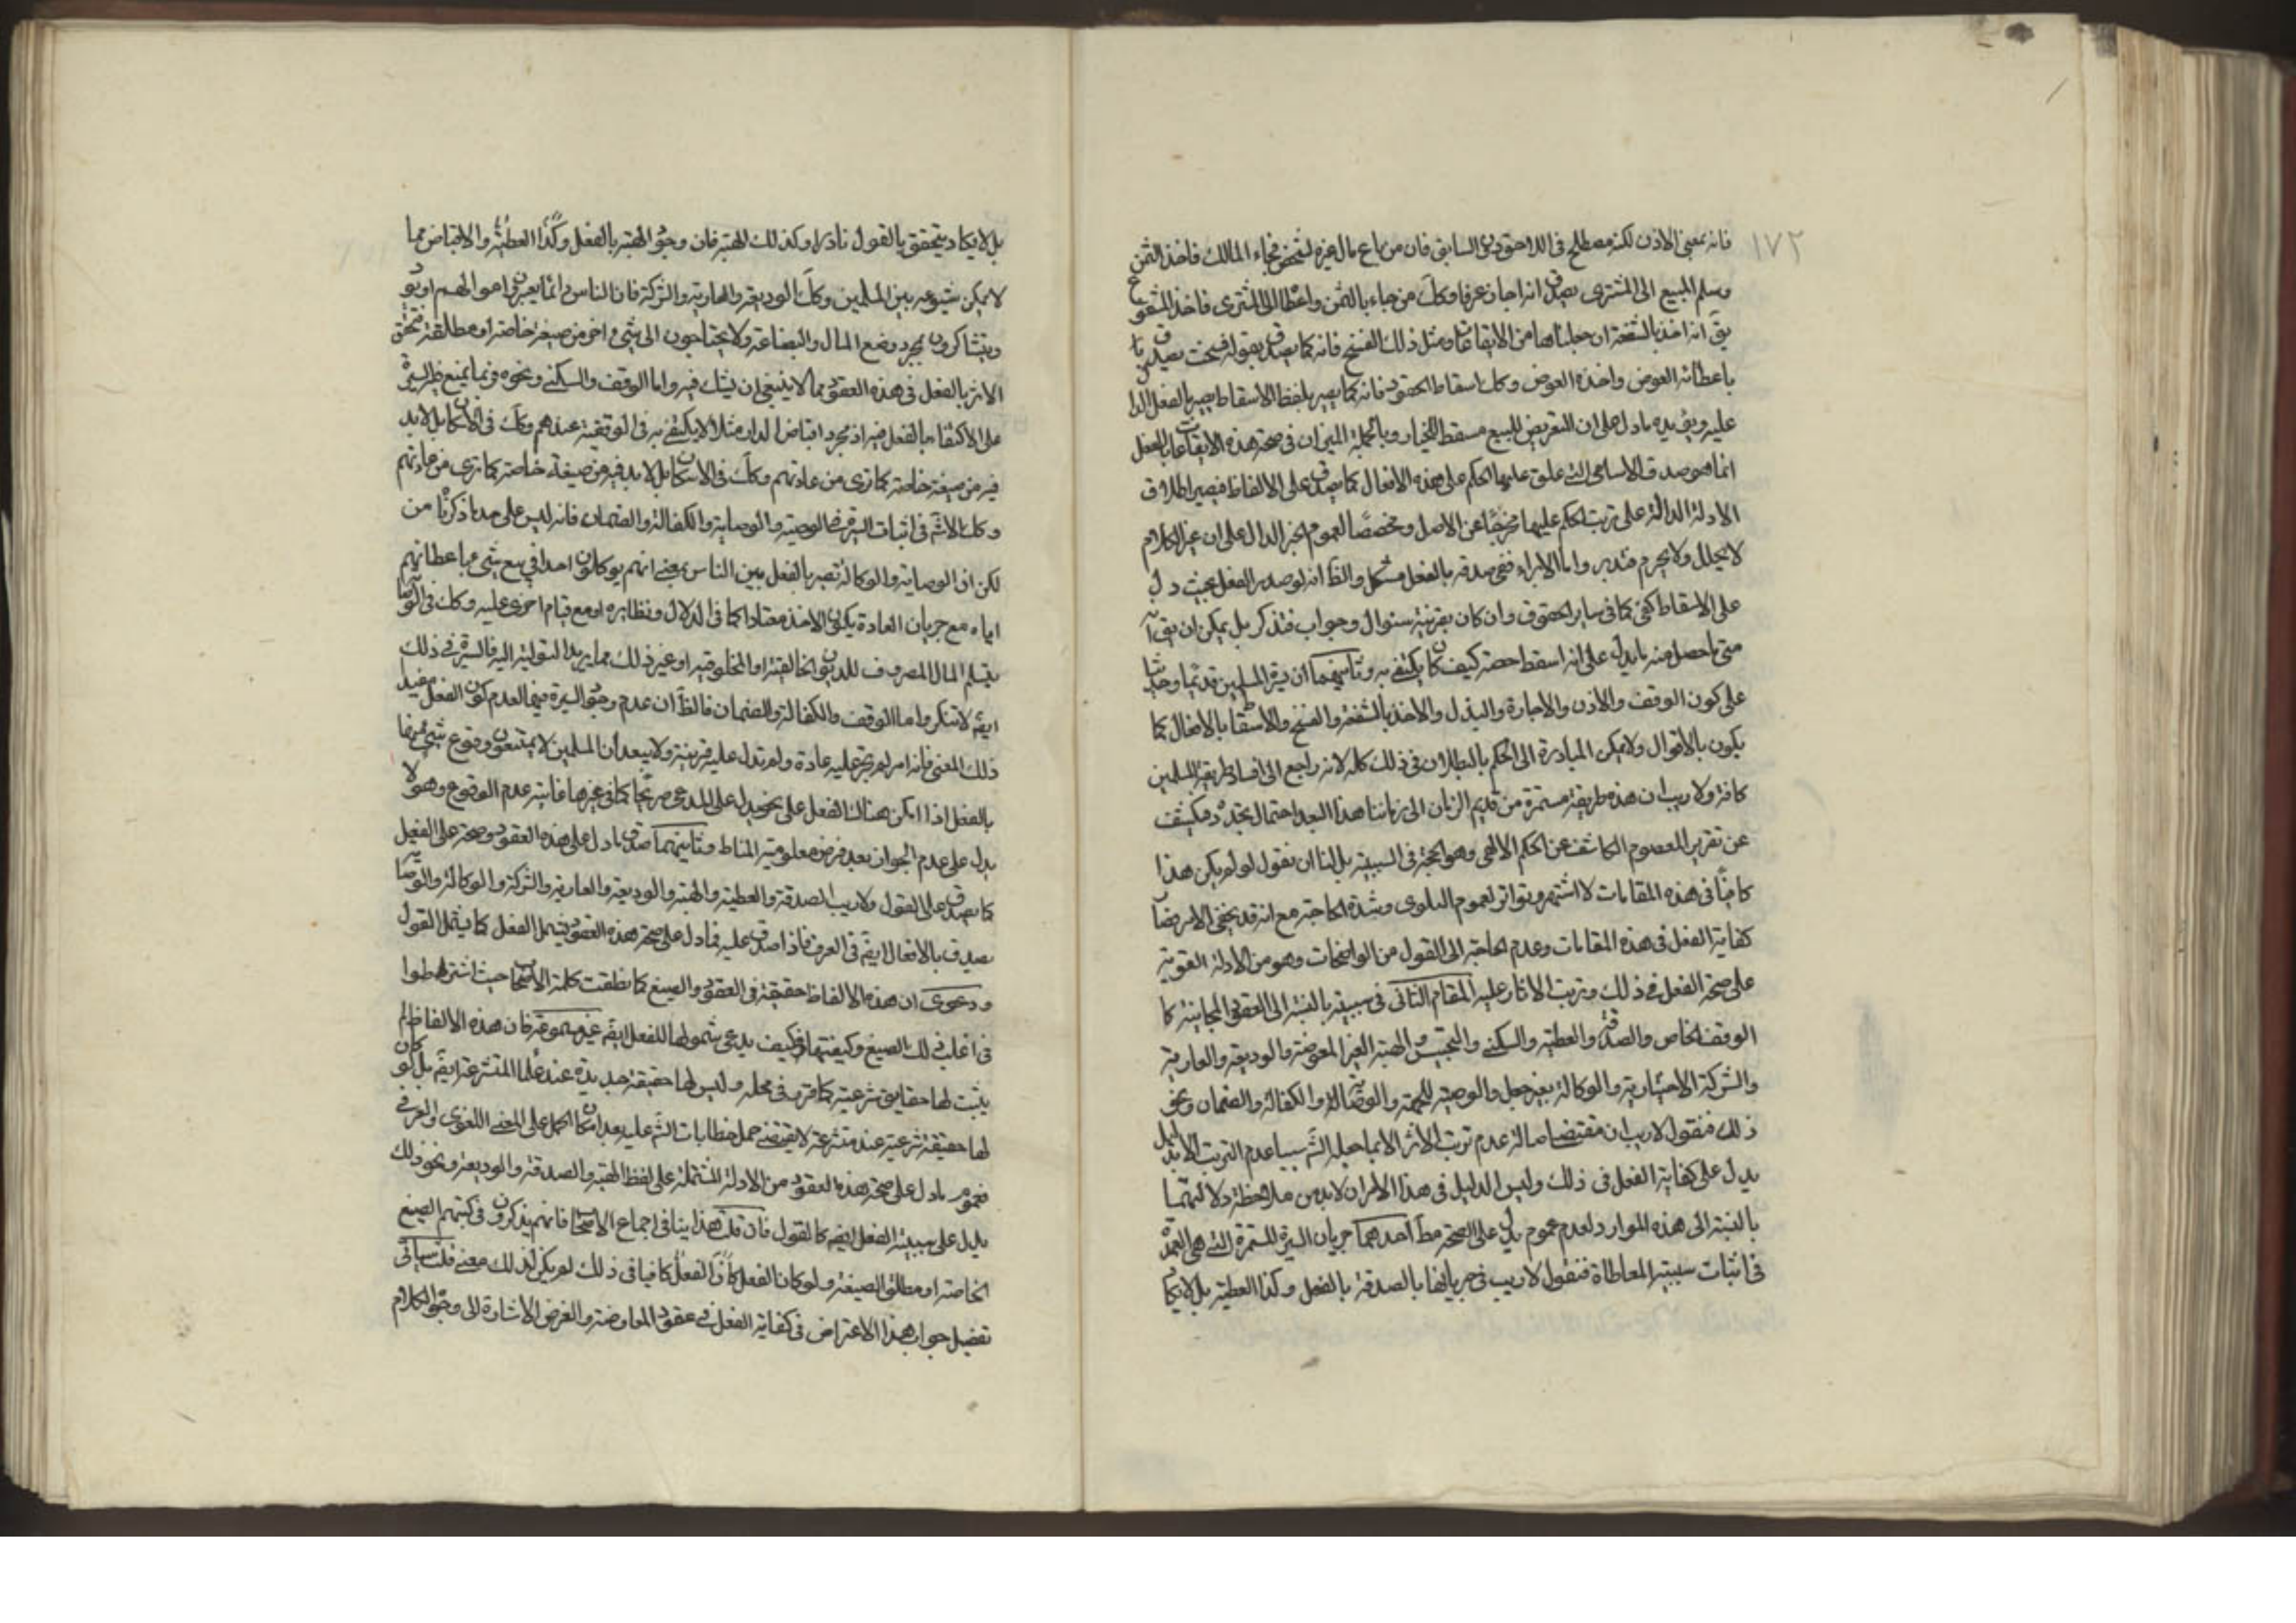 ١٧٢
فانه بمعنى الاذن لكنه مصطلح فى اللاحق دون السابق فان من باع مال غيره لشخص فجاء المالك فاخذ الثمن
وسلم المبيع الى المشترى يصدق انه اجاز عرفا وكك من جاء بالثمن واعطا الى المشترى فاخذ المشفوع
يق انه اخذ بالشفعة ان جعلناها من الايقاعات ومثل ذلك الفسخ فانه كما يصدق بقوله فسخت يصدق
باعطائه العوض واخذه العوض وكك اسقاط الحقوق فانه كما يصير بلفظ الاسقاط يصير بالفعل الدال
عليه ويؤيده ما دل على ان التعريض للبيع مسقط للخيار وبالجملة الميزان فى صحة هذه الايقاعات بالفعل
انما هو صدق الاسامى التى علق عليها الحكم على هذه الافعال كما يصدق على الالفاظ فيصير اطلاق
الادلة الدالة على ترتب الحكم عليها مخرجا عن الاصل ومخصصا لعموم الخبر الدال على ان غير الكلام
لا يحلل ولا يحرم فتدبر واما الابراء ففى صدقه بالفعل مشكل والظ انه لو صدر الفعل بحيث دل
على الاسقاط كفى كما فى ساير الحقوق وان كان بقرينة سئوال وجواب فتذكر بل يمكن ان يق انه
متى ما حصل منه ما يدل على انه اسقط حصته كيف كان يكتفى به وتاسيهما ان سيرة المسلمين قديما وحديثا
على كون الوقف والاذن والاجازة والبذل والاخذ بالشفعة والفسخ والاسقاط بالافعال كما
يكون بالاقوال ولا يمكن المبادرة الى الحكم بالبطلان فى ذلك كله لانه راجع الى افساد طريقة المسلمين
كافة ولا ريب ان هذه طريقة مستمرة من قديم الزمان الى زماننا هذا البعد احتمال تجدد فيكشف
عن تقرير المعصوم الكاشف عن الحكم الالهى وهو الحجة فى السببية بل لنا ان نقول لو لم يكن هذا
كافيا فى هذه المقامات لاشتهر وتواتر لعموم البلوى وشدة الحاجة مع انه قد يخفى الامر
كفاية الفعل فى هذه المقامات وعدم الحاجة الى القول من الواضحات وهو من الادلة القوية
على صحة الفعل فى ذلك وترتب الاثار عليه المقام الثانى فى سببيته بالنسبة الى العقود المجانية كا
الوقف الخاص والصدقة والعطية والسكنى والتحبيس والهبة الغير المعوضة والوديعة والعارية
والشركة الاختيارية والوكالة بغير جعل والوصية للجهة والوصاية والكفالة والضمان ونحو
ذلك فنقول لا ريب ان مقتضى اصالة عدم ترتب الاثر الا بما جعله الش سببا عدم الترتب الا بدليل
يدل على كفاية الفعل فى ذلك وليس الدليل فى هذا الا امران لا بد من ملاحظة دلالتهما
بالنسبة الى هذه الموارد لعدم عموم يدل على الصحة مط احدهما جريان السيرة المستمرة التى هى العمدة
فى اثبات سببية المعاطاة فنقول لا ريب فى جريانها بالصدقة بالفعل وكذا العطية بل لا يكا
بل لا يكاد يتحقق بالقول نادرا وكذلك الهبة فان وجود الهبة بالفعل وكذا العطية والاقباض مما
لا يمكن شيوعه بين المسلمين وكك الوديعة والعارية والشركة فان الناس دائما يعيرون اموالهم او يودعون
ويتشاركون بمجرد وضع المال والبضاعة ولا يحتاجون الى شىء اخر من صيغة خاصة او مطلقة فتحقق
الاثر بالفعل فى هذه العقود مما لا ينبغى ان يشك فيه واما الوقف والسكنى ونحوه فربما يمنع ظهر السيرة
على الاكتفا بالفعل فيه اذ مجرد اقباض الدار مثلا لا يكتفى به فى الوقفية عندهم وكك فى الاسكان بل لا بد
فيه من صيغة خاصة كما ترى من عادتهم وكك فى الاسكان بل لا بد فيه من صيغة خاصة كما ترى من عادتهم
وكك الاشكال فى اثبات السيرة فى الوصية والوصاية والكفالة والضمان فانه ليس على حد ما ذكرنا من
لكن ان الوصاية والوكالة تصير بالفعل بين الناس بمعنى انهم يوكلون احدا فى بيع شىء باعطائهم
اياه مع جريان العادة بكون الاخذ معتادا كما فى الدلال ونظايره او مع قيام اخرى عليه وكك فى الوصاية
بتسلم المال المصروف للديون الخالقية او المخلوقية او غير ذلك مما يريد التولية اليه فالسيرة فى ذلك
ايضا لا تنكر واما الوقف والكفالة والضمان فالظ ان عدم وجود السيرة فيها لعدم كون الفعل مفيد
ذلك المعنى فانه امر لم يجر عليه عادة ولم تدل عليه قرينة ولا يبعد ان المسلمين لا يمتنعون وقوع شىء منها
بالفعل اذا امكن هناك الفعل على نحو يدل على المدعى صريحا كما فى غيرها غايته عدم الوقوع وهو لا
يدل على عدم الجواز بعد فرض معلومية المناط وثانيهما صدق ما دل على هذه العقود وصحته على الفعل
كما يصدق على القول ولا ريب الصدقة والعطية والهبة والوديعة والعارية والشركة والوكالة والوصاية
يصدق بالافعال ايض فى العرف فاذا صدق عليه فما دل على صحة هذه العقود يشمل الفعل كما يشمل القول
ودعوى ان هذه الالفاظ حقيقة فى العقود والصيغ كما نطقت كلمة الاصحاب حيث اشترطوا
فى اغلب ذلك الصيغ وكيفيتها فكيف يدعى شمولها للفعل ايض غير مسموعة فان هذه الالفاظ لم
يثبت لها حقايق شرعية كما قرر فى محله وليس لها حقيقة جديدة عند علماء المتشرعة ايض بل لو كان
لها حقيقة شرعية عند متشرعة لا يقتضى حمل خطابات الش عليه بعد امكان الحمل على المعنى اللغوى والعرفى
فعموم ما دل على صحة هذه العقود من الادلة المشتملة على لفظ الهبة والصدقة والوديعة ونحو ذلك
يدل على سببية الفعل ايض كالقول فان قلت هذا ينافى اجماع الاصحاب فانهم يذكرون فى كتبهم الصيغ
الخاصة او مطلق الصيغة ولو كان الفعل كافيا فى ذلك لم يكن لذلك معنى قلت سياتى
تفصيل جواب هذا الاعتراض فى كفاية الفعل فى عقود المعاوضة والغرض الاشارة الى وجوه الكلام